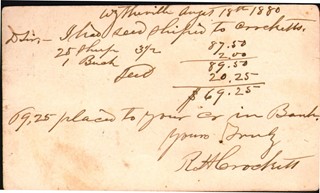 Wytheville Augt 18th 1880
D Sir,- I had seed shipped to Crocketts.
25 Sheep 3½ 87.50
1 Buck 2.00
89.50
Seed 20.25
$69.25
69.25 placed to your cr in Bank.
Yours Truly
R H Crockett